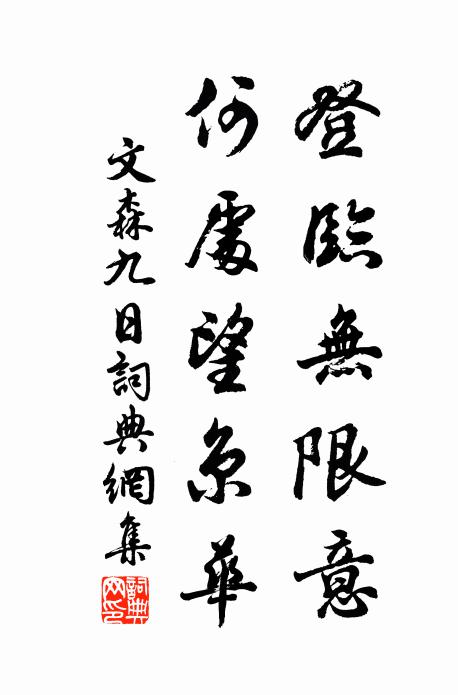 登臨無限意
何處望京華
文森九日詞典網集
詞典網印